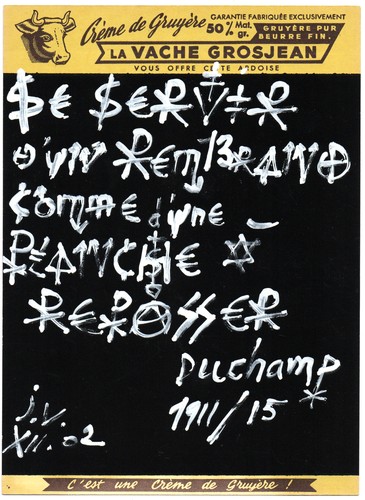 Crème de Gruyère
50% Mat. gr.
GARANTIE FABRIQUÉE EXCLUSIVEMENT
GRUYÈRE PUR
BEURRE FIN.
LA VACHE GROSJEAN
VOUS OFFRE CETTE ARDOISE
$€ $€RVIR
D'UN REMBRAND
COMME D'UNE
PLANCHE À
REPASSER
Duchamp
1911/15*
J.V.
XII.02
C'est une Crème de Gruyère !